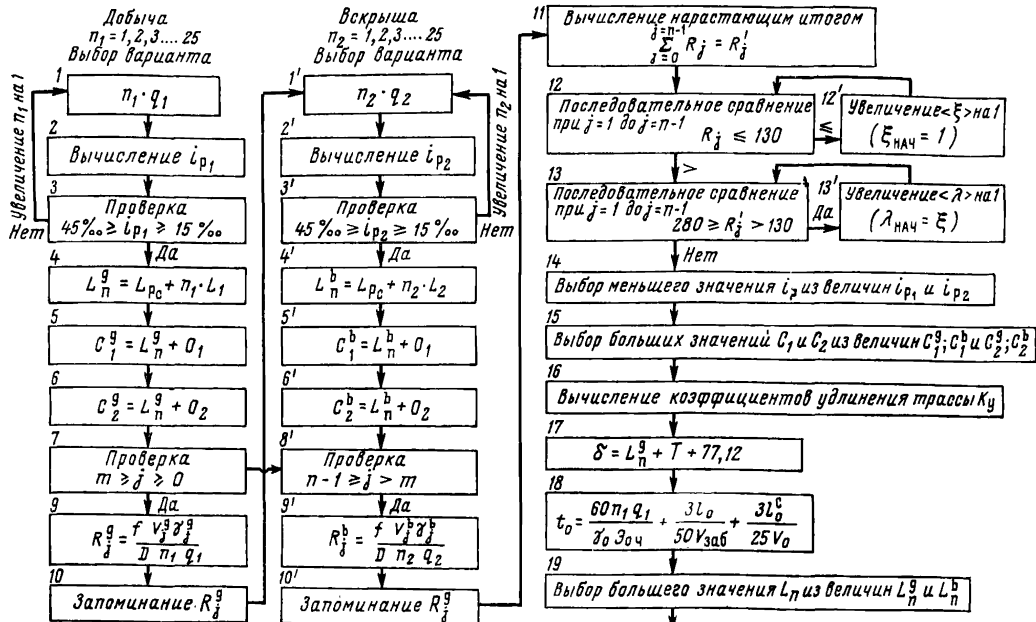 Добыча
n₁ = 1, 2, 3.... 25
Выбор варианта
Увеличение n₁ на 1
1
n₁ · q₁
2
Вычисление i_р₁
3
Проверка
45‰ ≥ i_р₁ ≥ 15‰
Нет
Да
4
L_n^g = L_рс + n₁ · L₁
5
C_1^g = L_n^g + O₁
6
C_2^g = L_n^g + O₂
7
Проверка
m ≥ j ≥ 0
Да
9
R_j^g = f V_j^g γ_j^g / D n₁ q₁
10
Запоминание R_j^g
Вскрыша
n₂ = 1, 2, 3.... 25
Выбор варианта
Увеличение n₂ на 1
1'
n₂ · q₂
2'
Вычисление i_р₂
3'
Проверка
45‰ ≥ i_р₂ ≥ 15‰
Нет
Да
4'
L_n^b = L_рс + n₂ · L₂
5'
C_1^b = L_n^b + O₁
6'
C_2^b = L_n^b + O₂
8'
Проверка
n-1 ≥ j > m
Да
9'
R_j^b = f V_j^b γ_j^b / D n₂ q₂
10'
Запоминание R_j^g
11
Вычисление нарастающим итогом
j=n-1
∑ R_j = R_j'
j=0
12
Последовательное сравнение
при j=1 до j=n-1
R_j ≤ 130
≤
12'
Увеличение <ξ> на 1
(ξ_НАЧ = 1)
>
13
Последовательное сравнение
при j=1 до j=n-1
280 ≥ R_j' > 130
Да
13'
Увеличение <λ> на 1
(λ_НАЧ = ξ)
Нет
14
Выбор меньшего значения i_р из величин i_р₁ и i_р₂
15
Выбор больших значений C₁ и C₂ из величин C_1^g; C_1^b и C_2^g; C_2^b
16
Вычисление коэффициентов удлинения трассы K_у
17
δ = L_n^g + T + 77,12
18
t₀ = 60 n₁ q₁ / γ₀ Э_оч + 3l₀ / 50 V_заб + 3l₀^c / 25 V₀
19
Выбор большего значения L_n из величин L_n^g и L_n^b